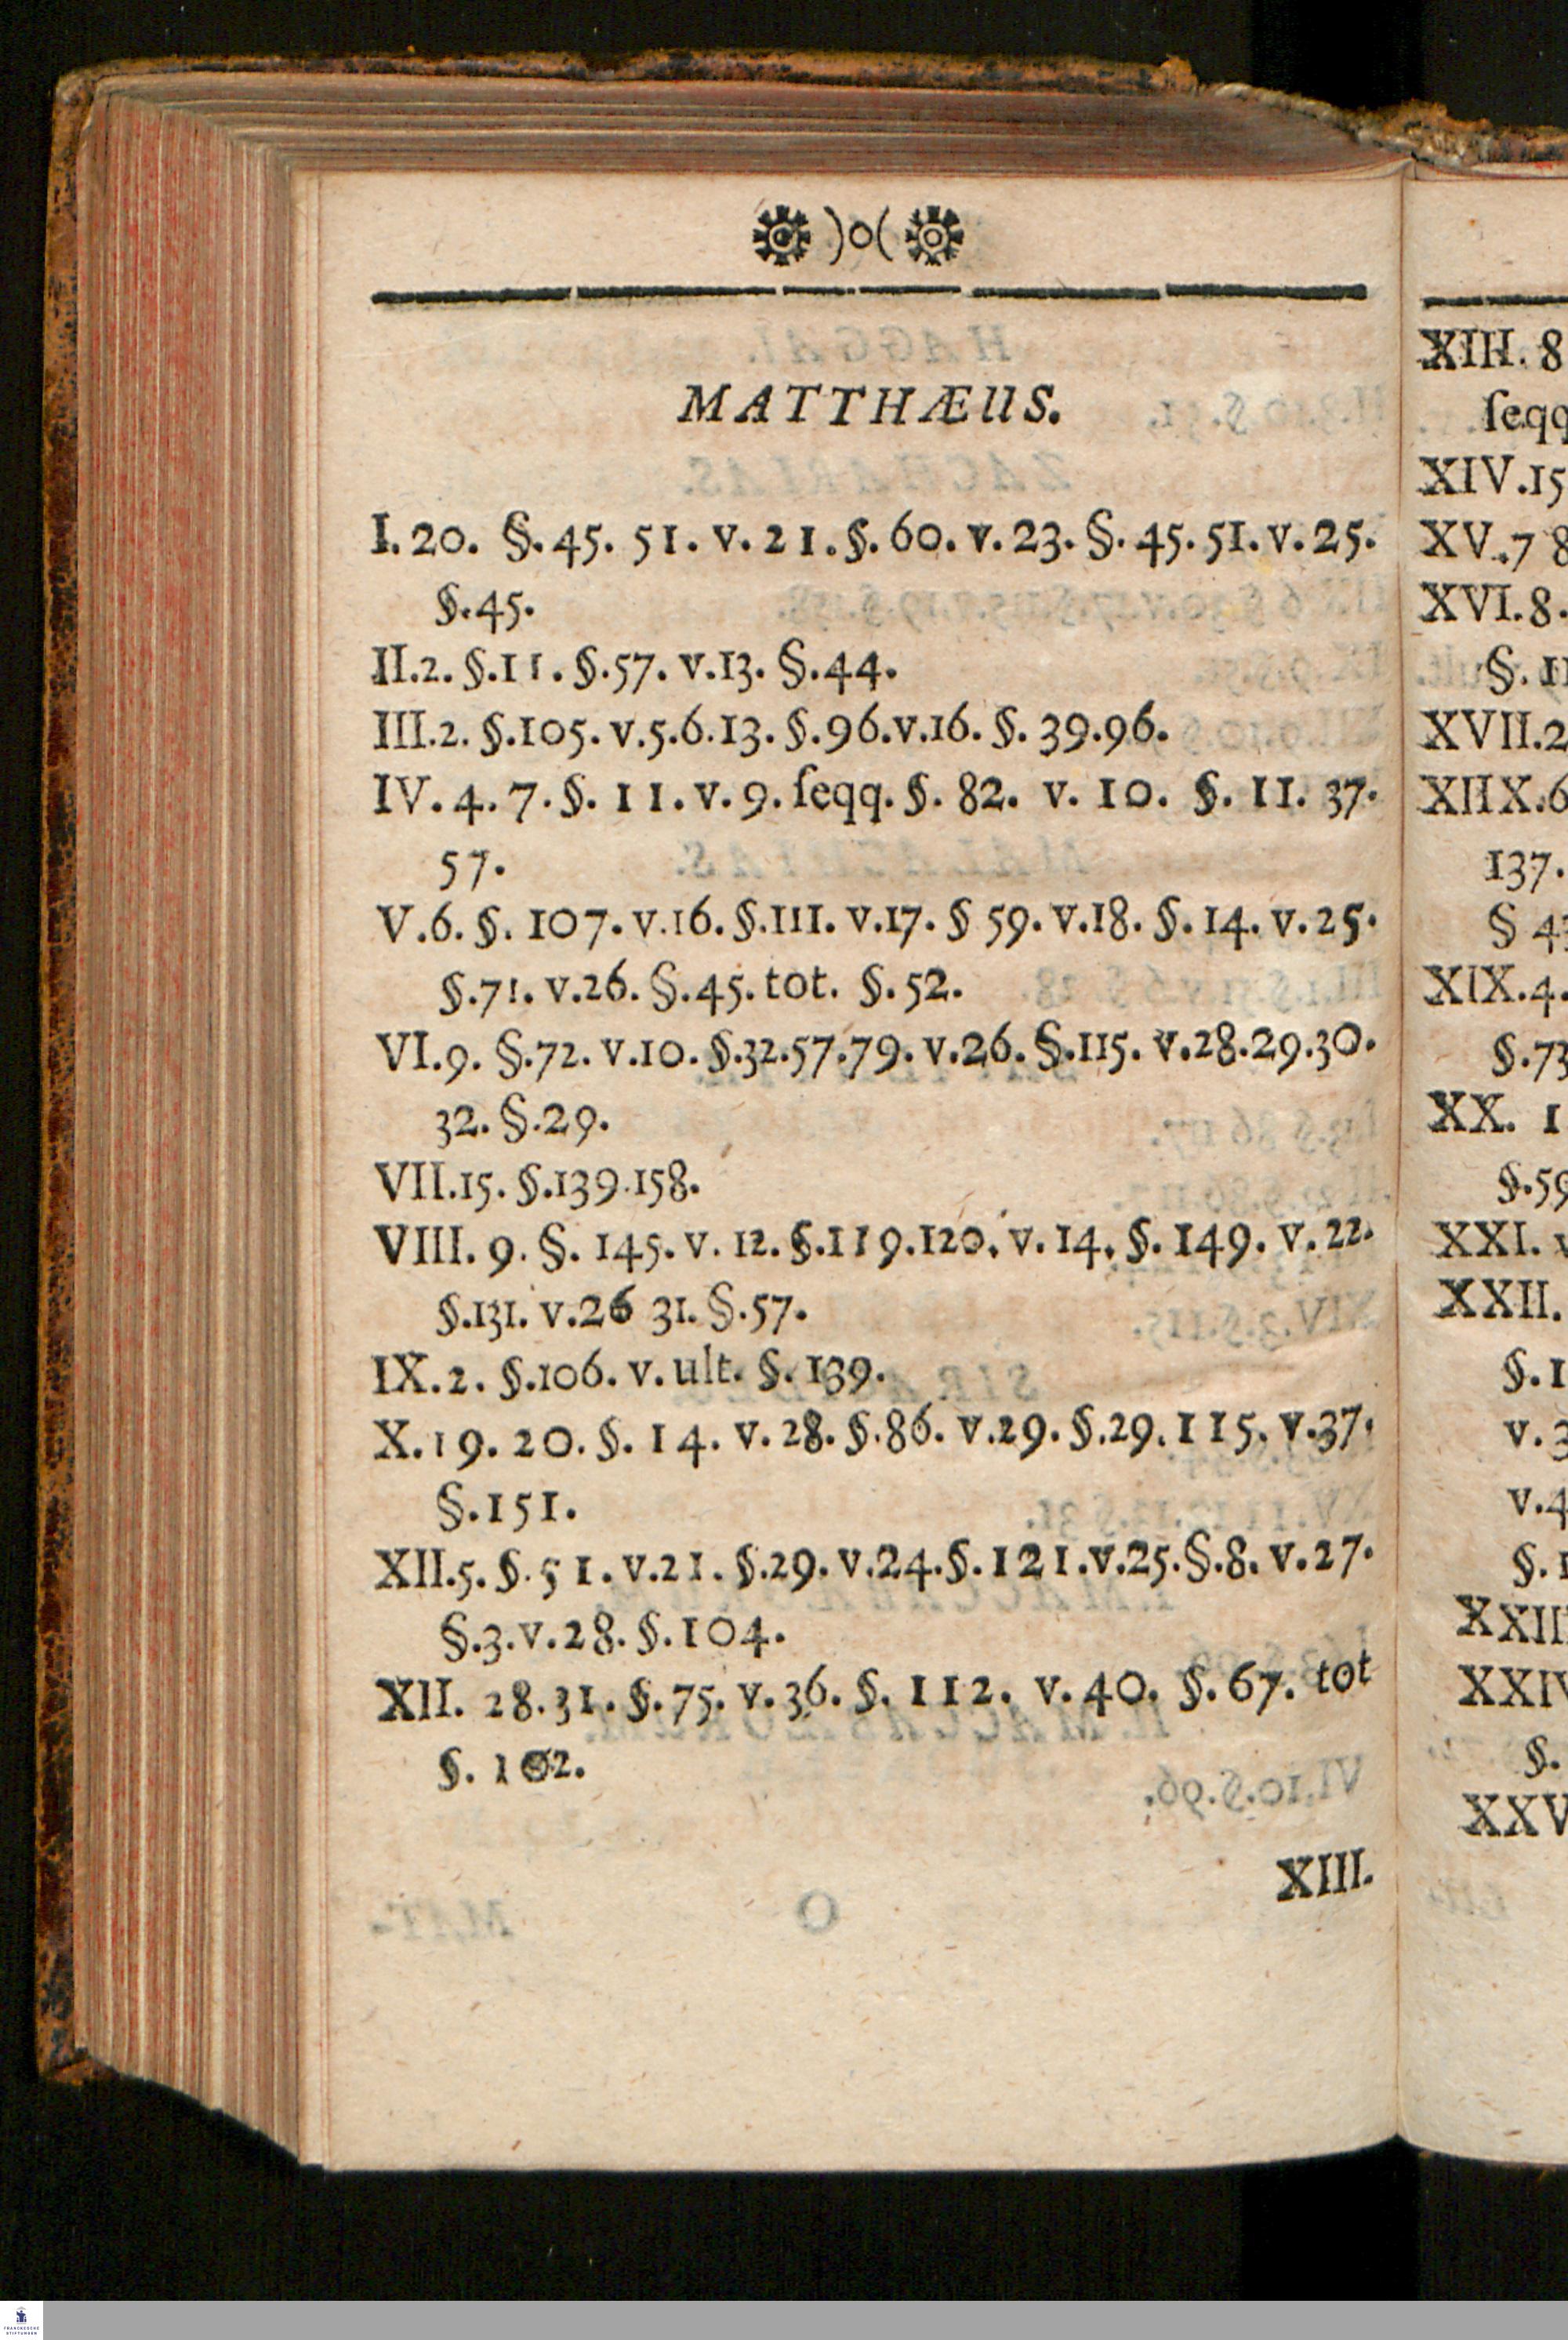 )o(
MATTHÆUS.
I. 20. §. 45. 51. v. 21. §. 60. v. 23. §. 45. 51. v. 25.
§. 45.
II. 2. §. 11. §. 57. v. 13. §. 44.
III. 2. §. 105. v. 5. 6. 13. §. 96. v. 16. §. 39. 96.
IV. 4. 7. §. 11. v. 9. ſeqq. §. 82. v. 10. §. 11. 37.
57.
V. 6. §. 107. v. 16. §. 111. v. 17. § 59. v. 18. §. 14. v. 25.
§. 71. v. 26. §. 45. tot. §. 52.
VI. 9. §. 72. v. 10. §. 32. 57. 79. v. 26. §. 115. v. 28. 29. 30.
32. §. 29.
VII. 15. §. 139. 158.
VIII. 9. §. 145. v. 12. §. 119. 120. v. 14. §. 149. v. 22.
§. 131. v. 26 31. §. 57.
IX. 2. §. 106. v. ult. §. 139.
X. 19. 20. §. 14. v. 28. §. 86. v. 29. §. 29. 115. v. 37.
§. 151.
XII. 5. §. 51. v. 21. §. 29. v. 24. §. 121. v. 25. §. 8. v. 27.
§. 3. v. 28. §. 104.
XII. 28. 31. §. 75. v. 36. §. 112. v. 40. §. 67. tot
§. 102.
XIII.
XIII. 8
ſeqq
XIV. 15
XV. 7 8
XVI. 8.
§. 11
XVII. 2
XIIX. 6
137.
§ 43
XIX. 4.
§. 73
XX. 1
§. 59
XXI. v
XXII.
§. 1
v. 3
v. 4
§. 1
XXII
XXIV
§.
XXV
FRANCKESCHE
STIFTUNGEN